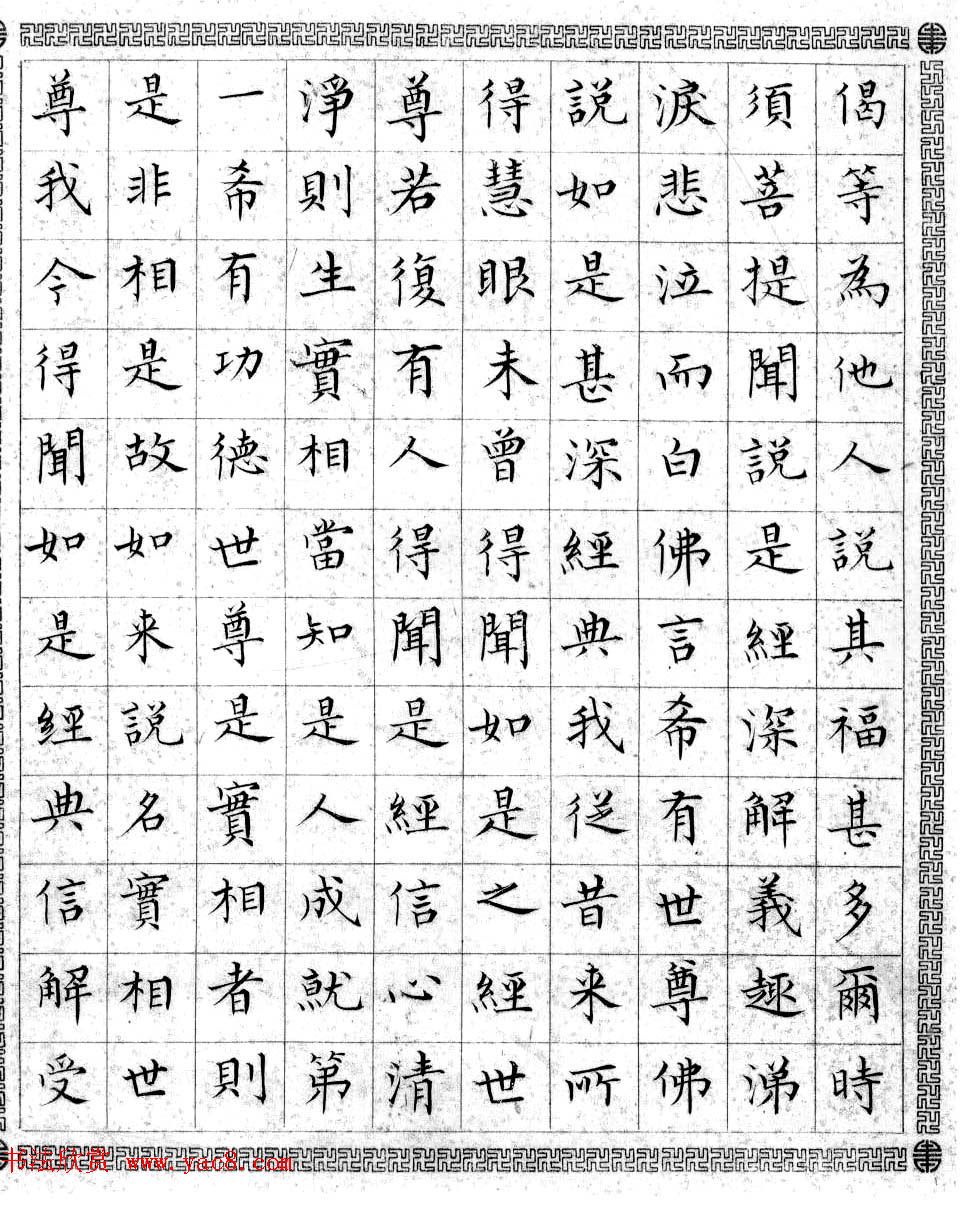 偈等為他人說其福甚多爾時
須菩提聞說是經深解義趣涕
淚悲泣而白佛言希有世尊佛
說如是甚深經典我從昔来所
得慧眼未曾得聞如是之經世
尊若復有人得聞是經信心清
淨則生實相當知是人成就第
一希有功德世尊是實相者則
是非相是故如来說名實相世
尊我今得聞如是經典信解受
书法欣赏 www.yac8.com